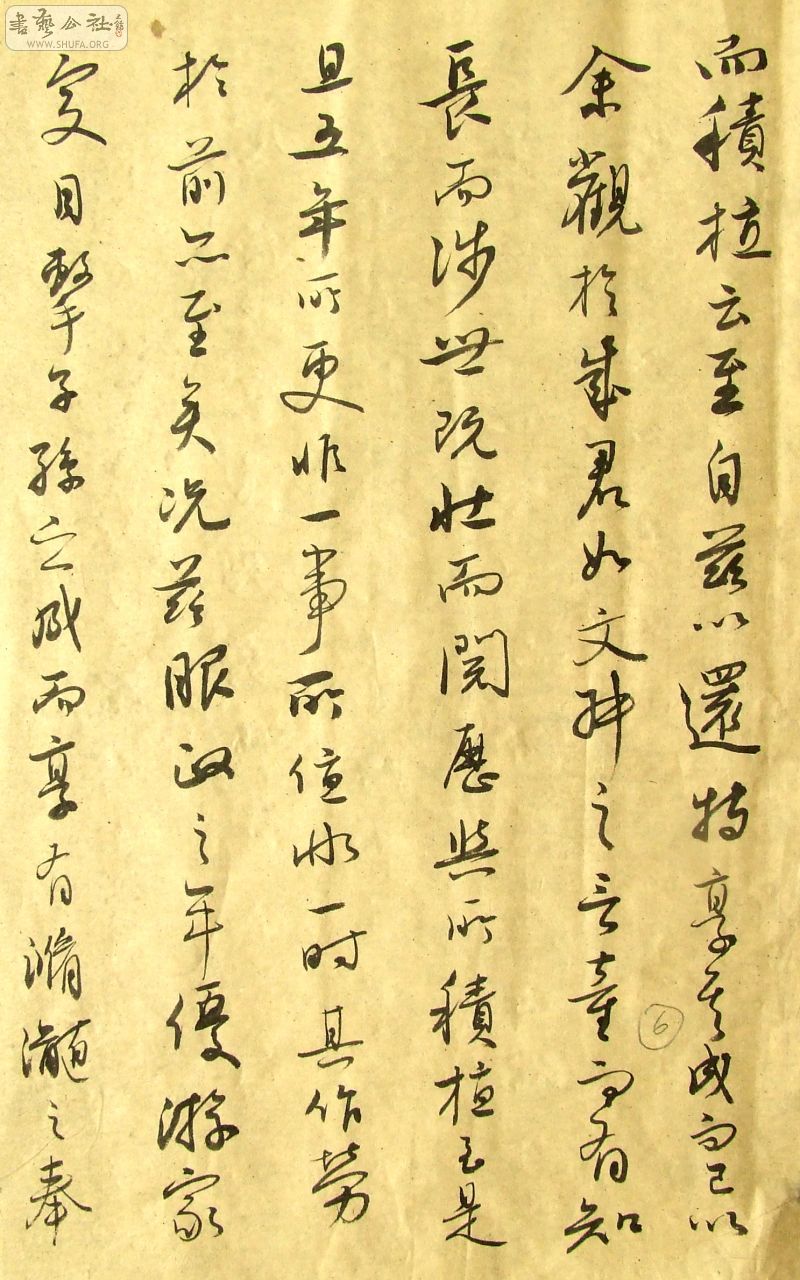 書藝公社
WWW.SHUFA.ORG
而積植云至自茲以還特享其成而已以
余觀於歲君如文砰之言童而有知
長而涉世既壯而閱歷與所積植至是
且五年所更非一事所值非一時其作勞
於前亦至矣況茲眼政之年優游家
食目擊子孫之成而享有滫瀡之奉
6